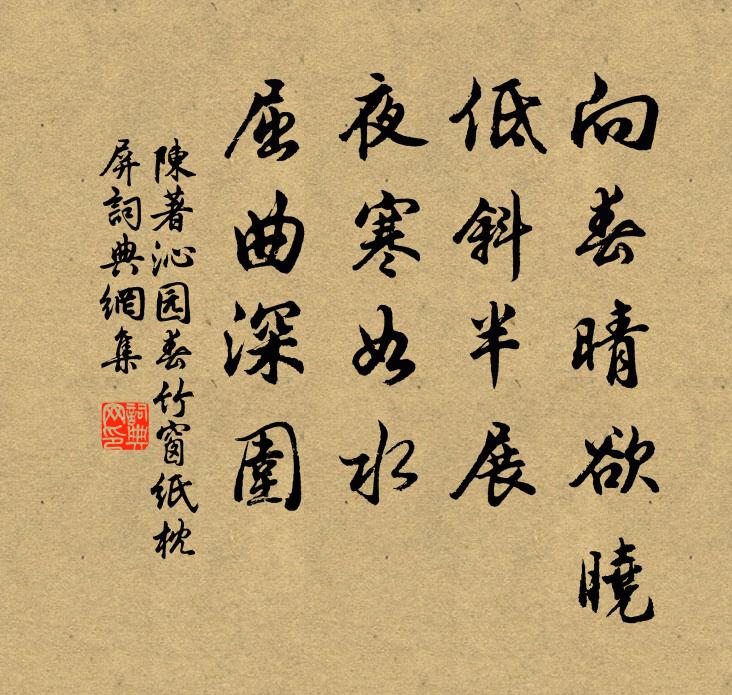 向春晴欲曉
低斜半展
夜寒如水
屈曲深圍
陳著沁园春竹窗紙枕
屏詞典網集
詞典网印